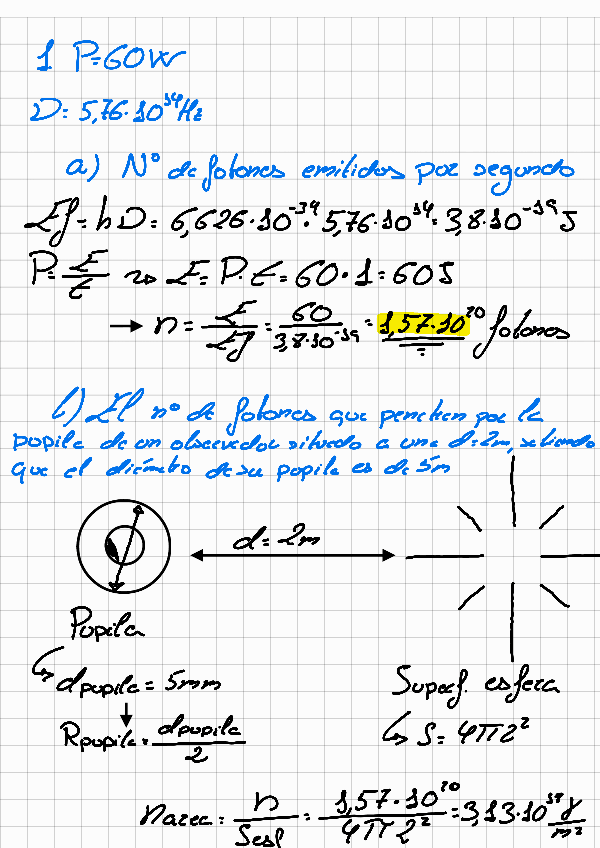 1 P=60W
ν= 5,76·10¹⁴Hz
a) Nº de fotones emitidos por segundo
Ef = hν = 6,626·10⁻³⁴·5,76·10¹⁴= 3,8·10⁻¹⁹J
P=E/t ⤳ E= P·t = 60·1=60J
→ n = E/Ef = 60/3,8·10⁻¹⁹ = 1,57·10²⁰ fotones
b) El nº de fotones que penetren por la
pupila de un observador situado a una d=2m, sabiendo
que el diámetro de su pupila es de 5m
d= 2m
Pupila
↳ dpupila = 5mm
Rpupila = dpupila/2
Superf. esfera
↳ S= 4π2²
narea = n/Sesf = 1,57·10²⁰/4π2² = 3,13·10¹⁸ γ/m²